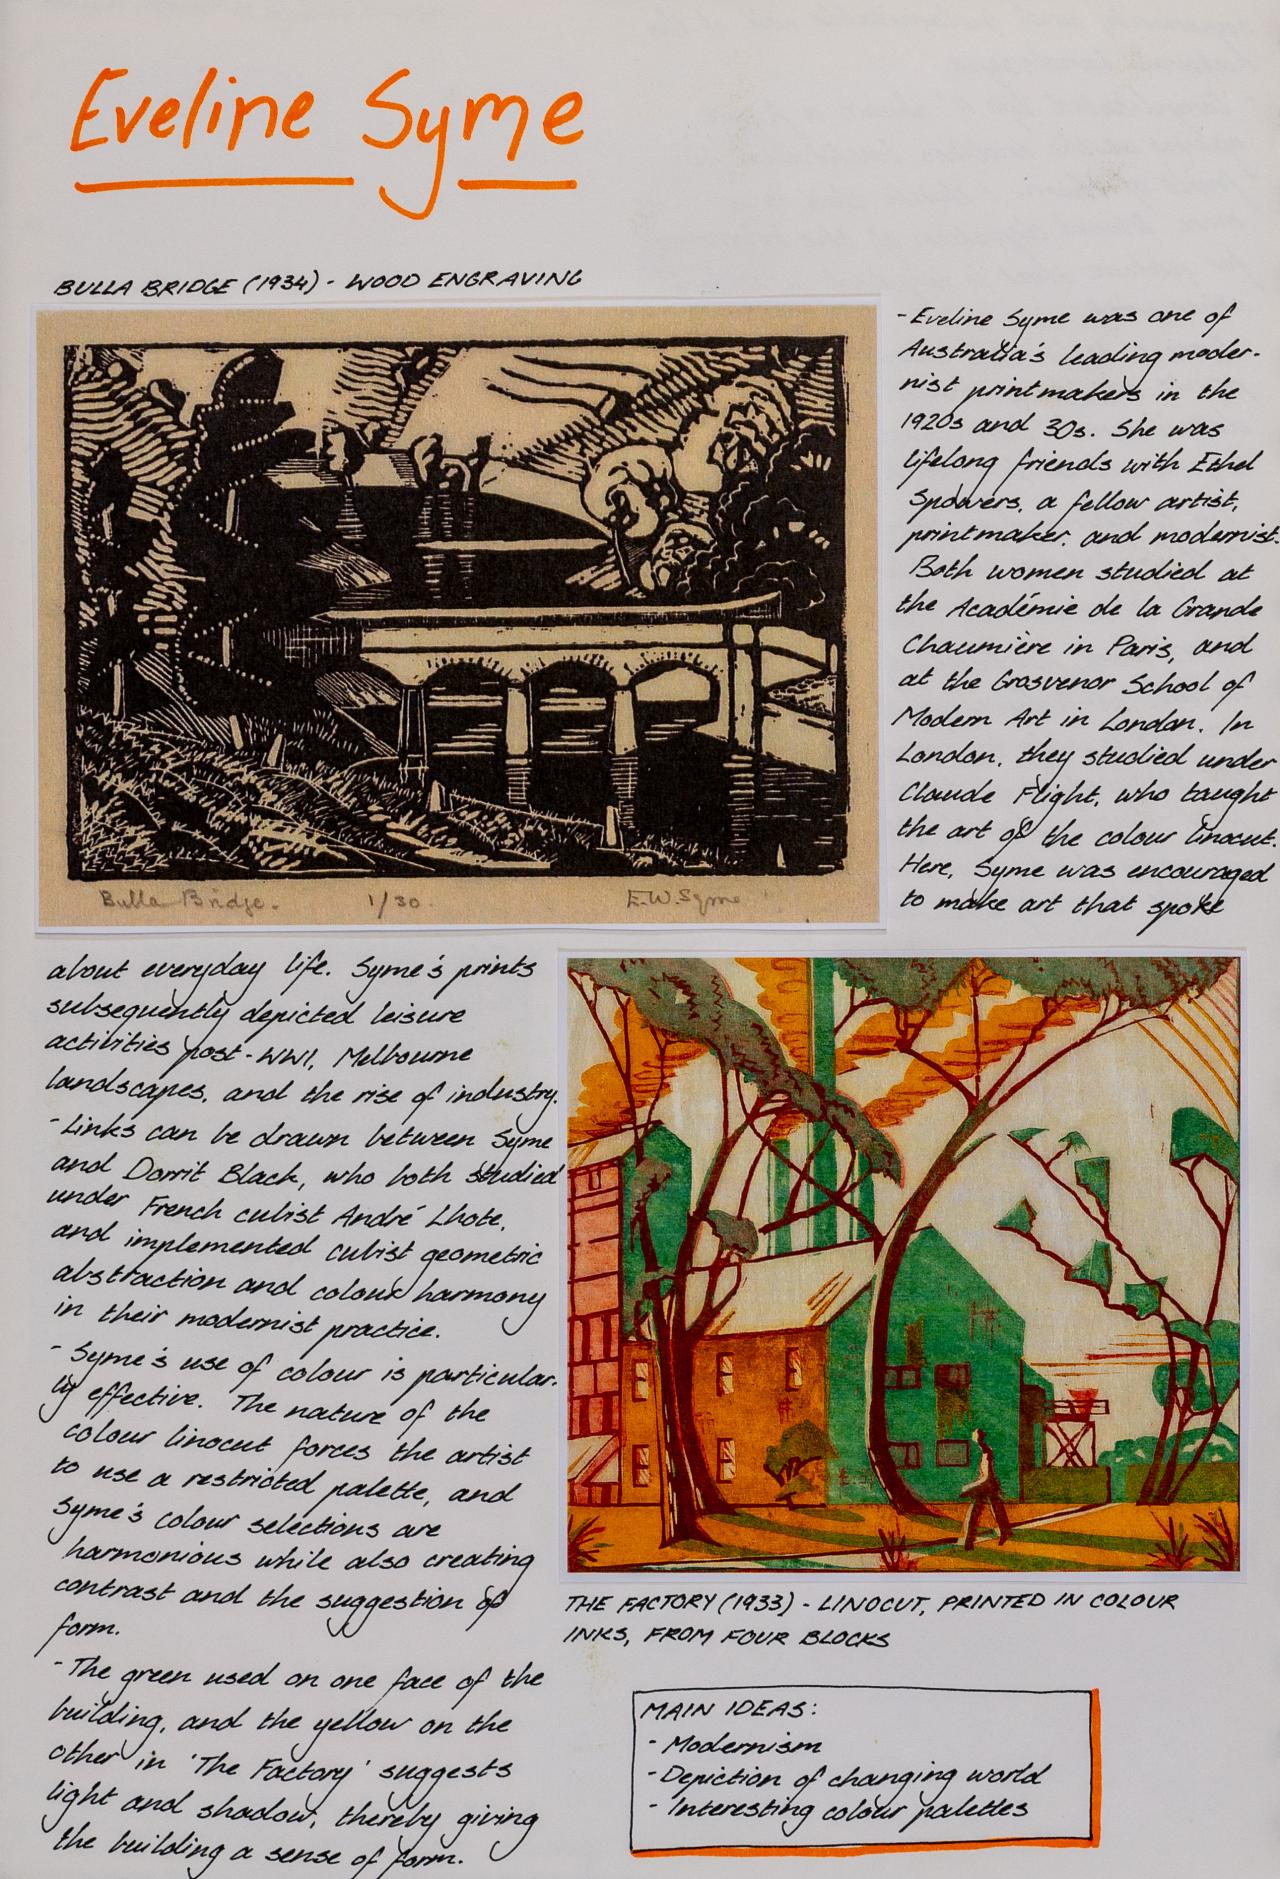 Eveline Syme
BULLA BRIDGE (1934) - WOOD ENGRAVING
Bulla Bridge. 1/30. E.W.Syme
- Eveline Syme was one of
Australia's leading moder-
nist printmakers in the
1920s and 30s. She was
lifelong friends with Ethel
Spowers, a fellow artist,
printmaker, and modernist.
Both women studied at
the Académie de la Grande
Chaumière in Paris, and
at the Grosvenor School of
Modern Art in London. In
London, they studied under
Claude Flight, who taught
the art of the colour linocut.
Here, Syme was encouraged
to make art that spoke
about everyday life. Syme's prints
subsequently depicted leisure
activities post-WWI, Melbourne
landscapes, and the rise of industry.
- Links can be drawn between Syme
and Dorrit Black, who both studied
under French cubist André Lhote,
and implemented cubist geometric
abstraction and colour harmony
in their modernist practice.
- Syme's use of colour is particular-
ly effective. The nature of the
colour linocut forces the artist
to use a restricted palette, and
Syme's colour selections are
harmonious while also creating
contrast and the suggestion of
form.
- The green used on one face of the
building, and the yellow on the
other in 'The Factory' suggests
light and shadow, thereby giving
the building a sense of form.
THE FACTORY (1933) - LINOCUT, PRINTED IN COLOUR
INKS, FROM FOUR BLOCKS
MAIN IDEAS:
- Modernism
- Depiction of changing world
- Interesting colour palettes